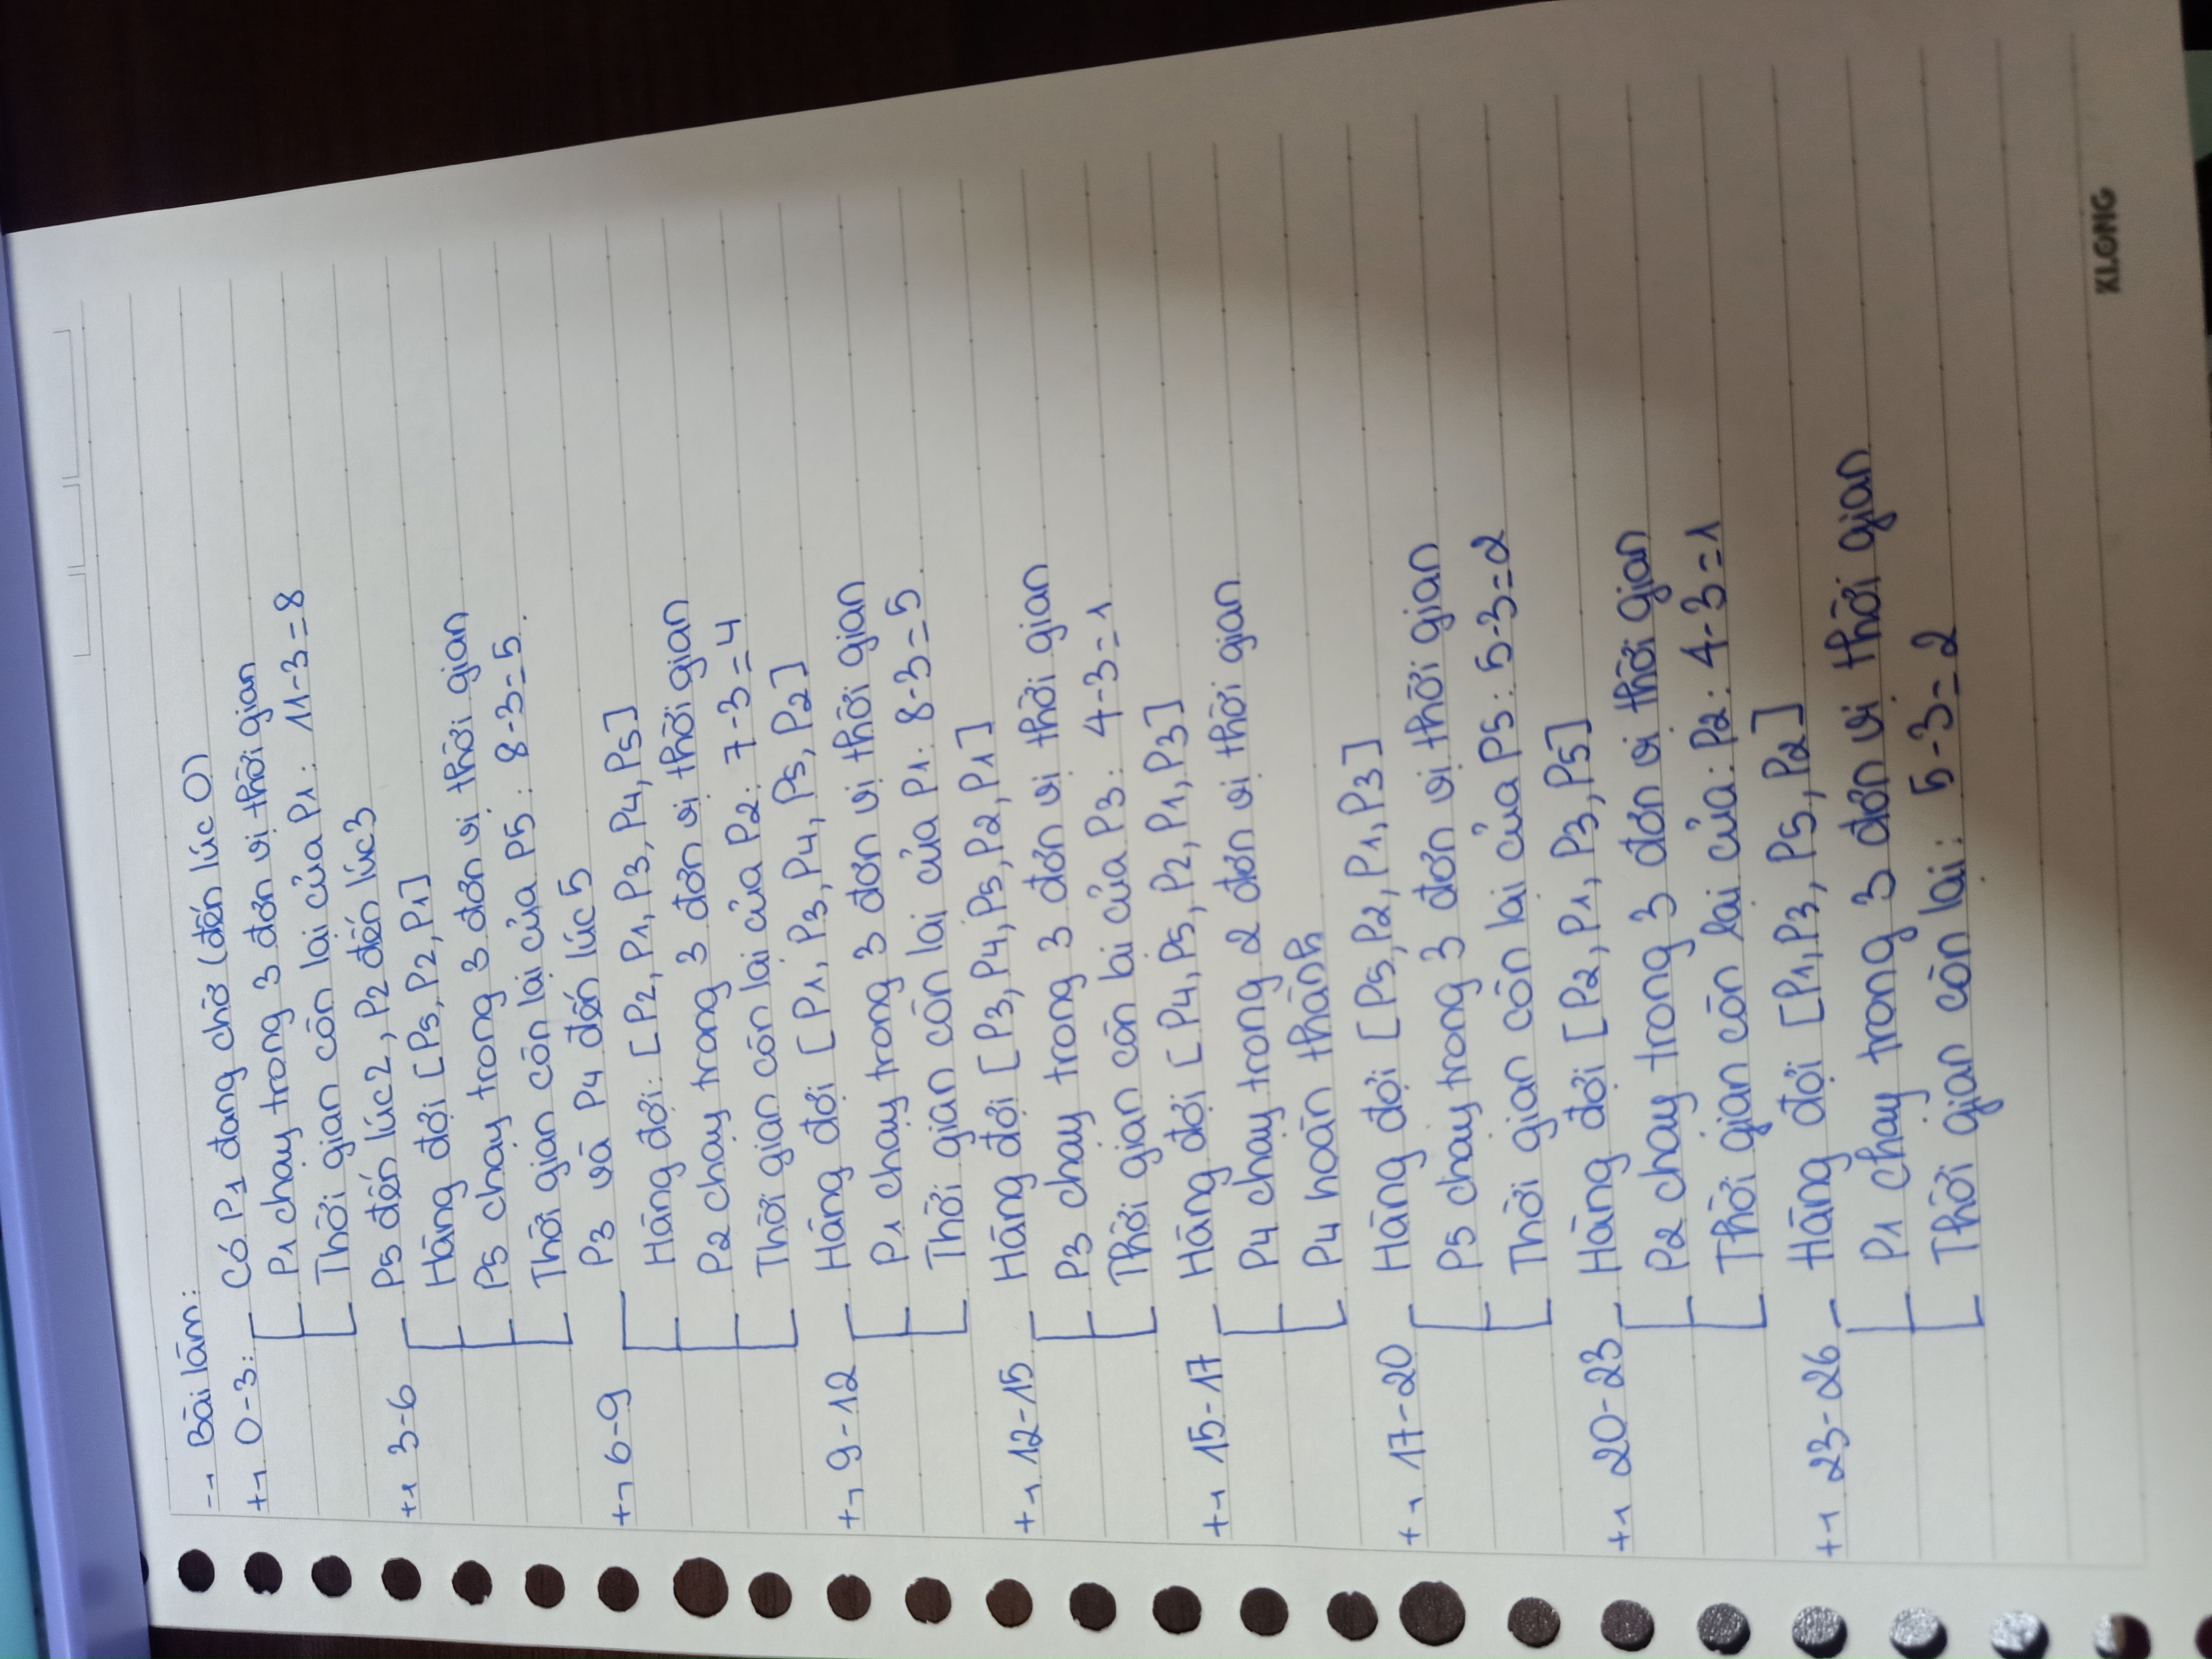 → Bài làm:
+→ 0-3: Có P1 đang chờ (đến lúc 0)
P1 chạy trong 3 đơn vị thời gian
Thời gian còn lại của P1: 11-3=8
P5 đến lúc 2, P2 đến lúc 3
+→ 3-6 Hàng đợi [P5, P2, P1]
P5 chạy trong 3 đơn vị thời gian
Thời gian còn lại của P5: 8-3=5.
P3 và P4 đến lúc 5
+→ 6-9 Hàng đợi: [P2, P1, P3, P4, P5]
P2 chạy trong 3 đơn vị thời gian
Thời gian còn lại của P2: 7-3=4
+→ 9-12 Hàng đợi [P1, P3, P4, P5, P2]
P1 chạy trong 3 đơn vị thời gian
Thời gian còn lại của P1: 8-3=5.
+→ 12-15 Hàng đợi [P3, P4, P5, P2, P1]
P3 chạy trong 3 đơn vị thời gian
Thời gian còn lại của P3: 4-3=1
+→ 15-17 Hàng đợi [P4, P5, P2, P1, P3]
P4 chạy trong 2 đơn vị thời gian
P4 hoàn thành
+→ 17-20 Hàng đợi [P5, P2, P1, P3]
P5 chạy trong 3 đơn vị thời gian
Thời gian còn lại của P5: 5-3=2
+→ 20-23 Hàng đợi [P2, P1, P3, P5]
P2 chạy trong 3 đơn vị thời gian
Thời gian còn lại của: P2: 4-3=1
+→ 23-26 Hàng đợi [P1, P3, P5, P2]
P1 chạy trong 3 đơn vị thời gian
Thời gian còn lại: 5-3=2
KLONG